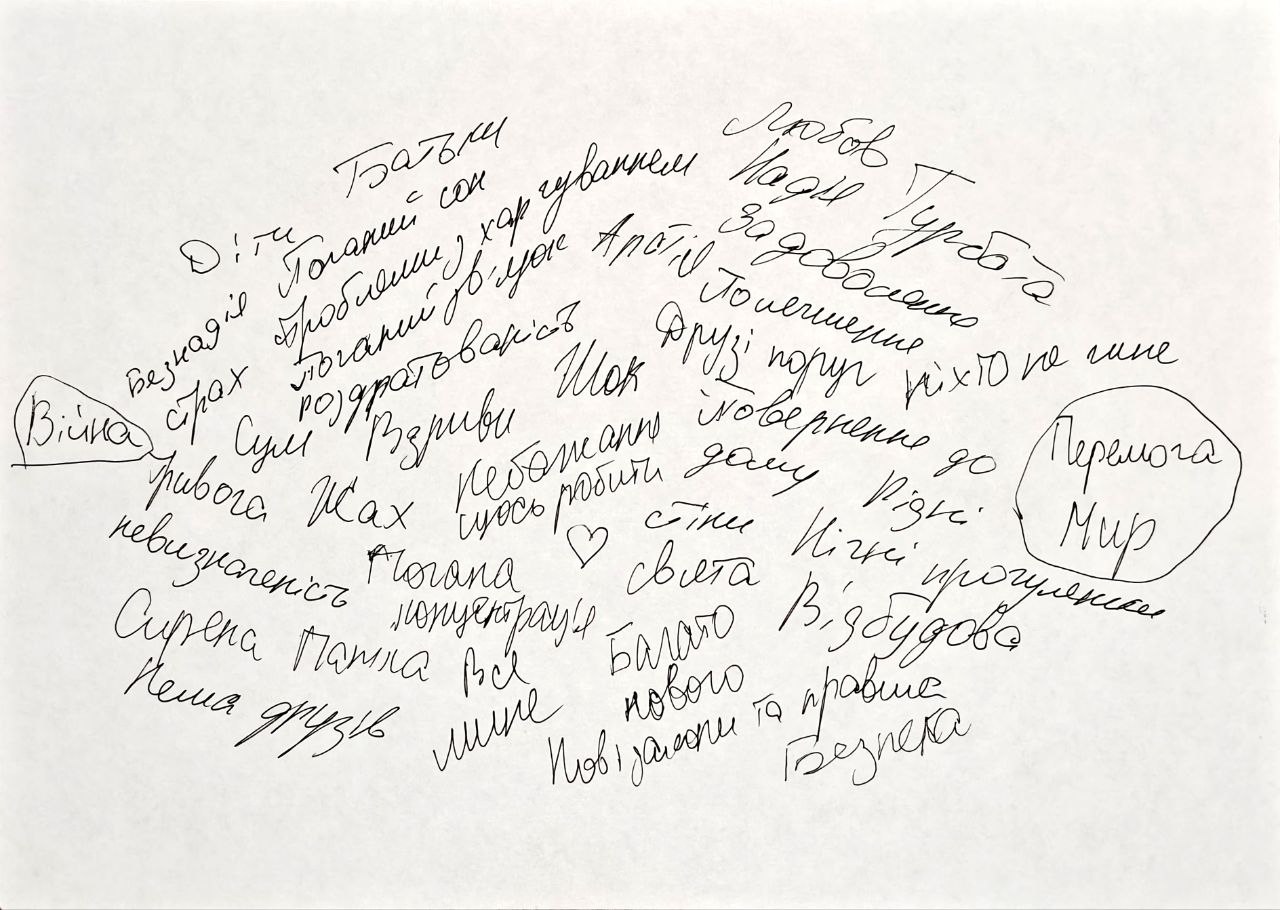 Батьки
Діти
Поганий сон
Безнадія
Проблеми з харчуванням
страх
поганий зв'язок
роздратованість
Апатія
Війна
Сум
Взриви
Шок
Тривога
Жах
Небажання
щось робити
невизначеність
Погана
концентрація
Сирена
Паніка
Все
мине
Нема друзів
Любов
Надія
Турбота
Задоволення
Полегшення
Друзі поруч
ніхто не гине
Повернення до
дому
Перемога
Мир
стіни
Різні
свята
Нічні прогулянки
Багато
нового
Відбудова
Нові закони та правила
Безпека